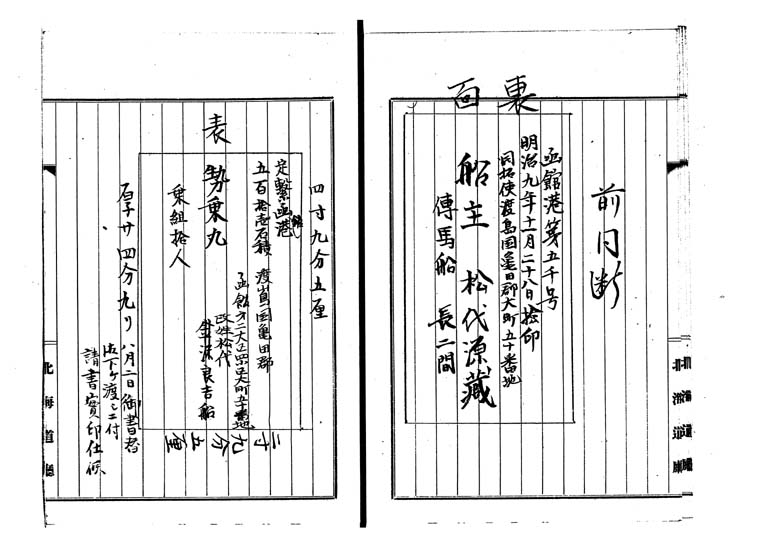 前同断
裏面
函館港第五千号
明治九年十一月二十八日検印
開拓使渡島国亀田郡大町五十番地
船主 松代源蔵
傳馬船 長二間
北海道廳
四寸九分五厘
表
定繋函館港
五百拾壱石積
渡島国亀田郡
函館方二大区四小区大町五十番地
勢乗丸
改姓松代
金澤良吉船
乗組拾人
二寸九分五厘
厚サ四分九リ
八月二日御書替
御下ケ渡シニ付
請書實印仕候
北海道廳